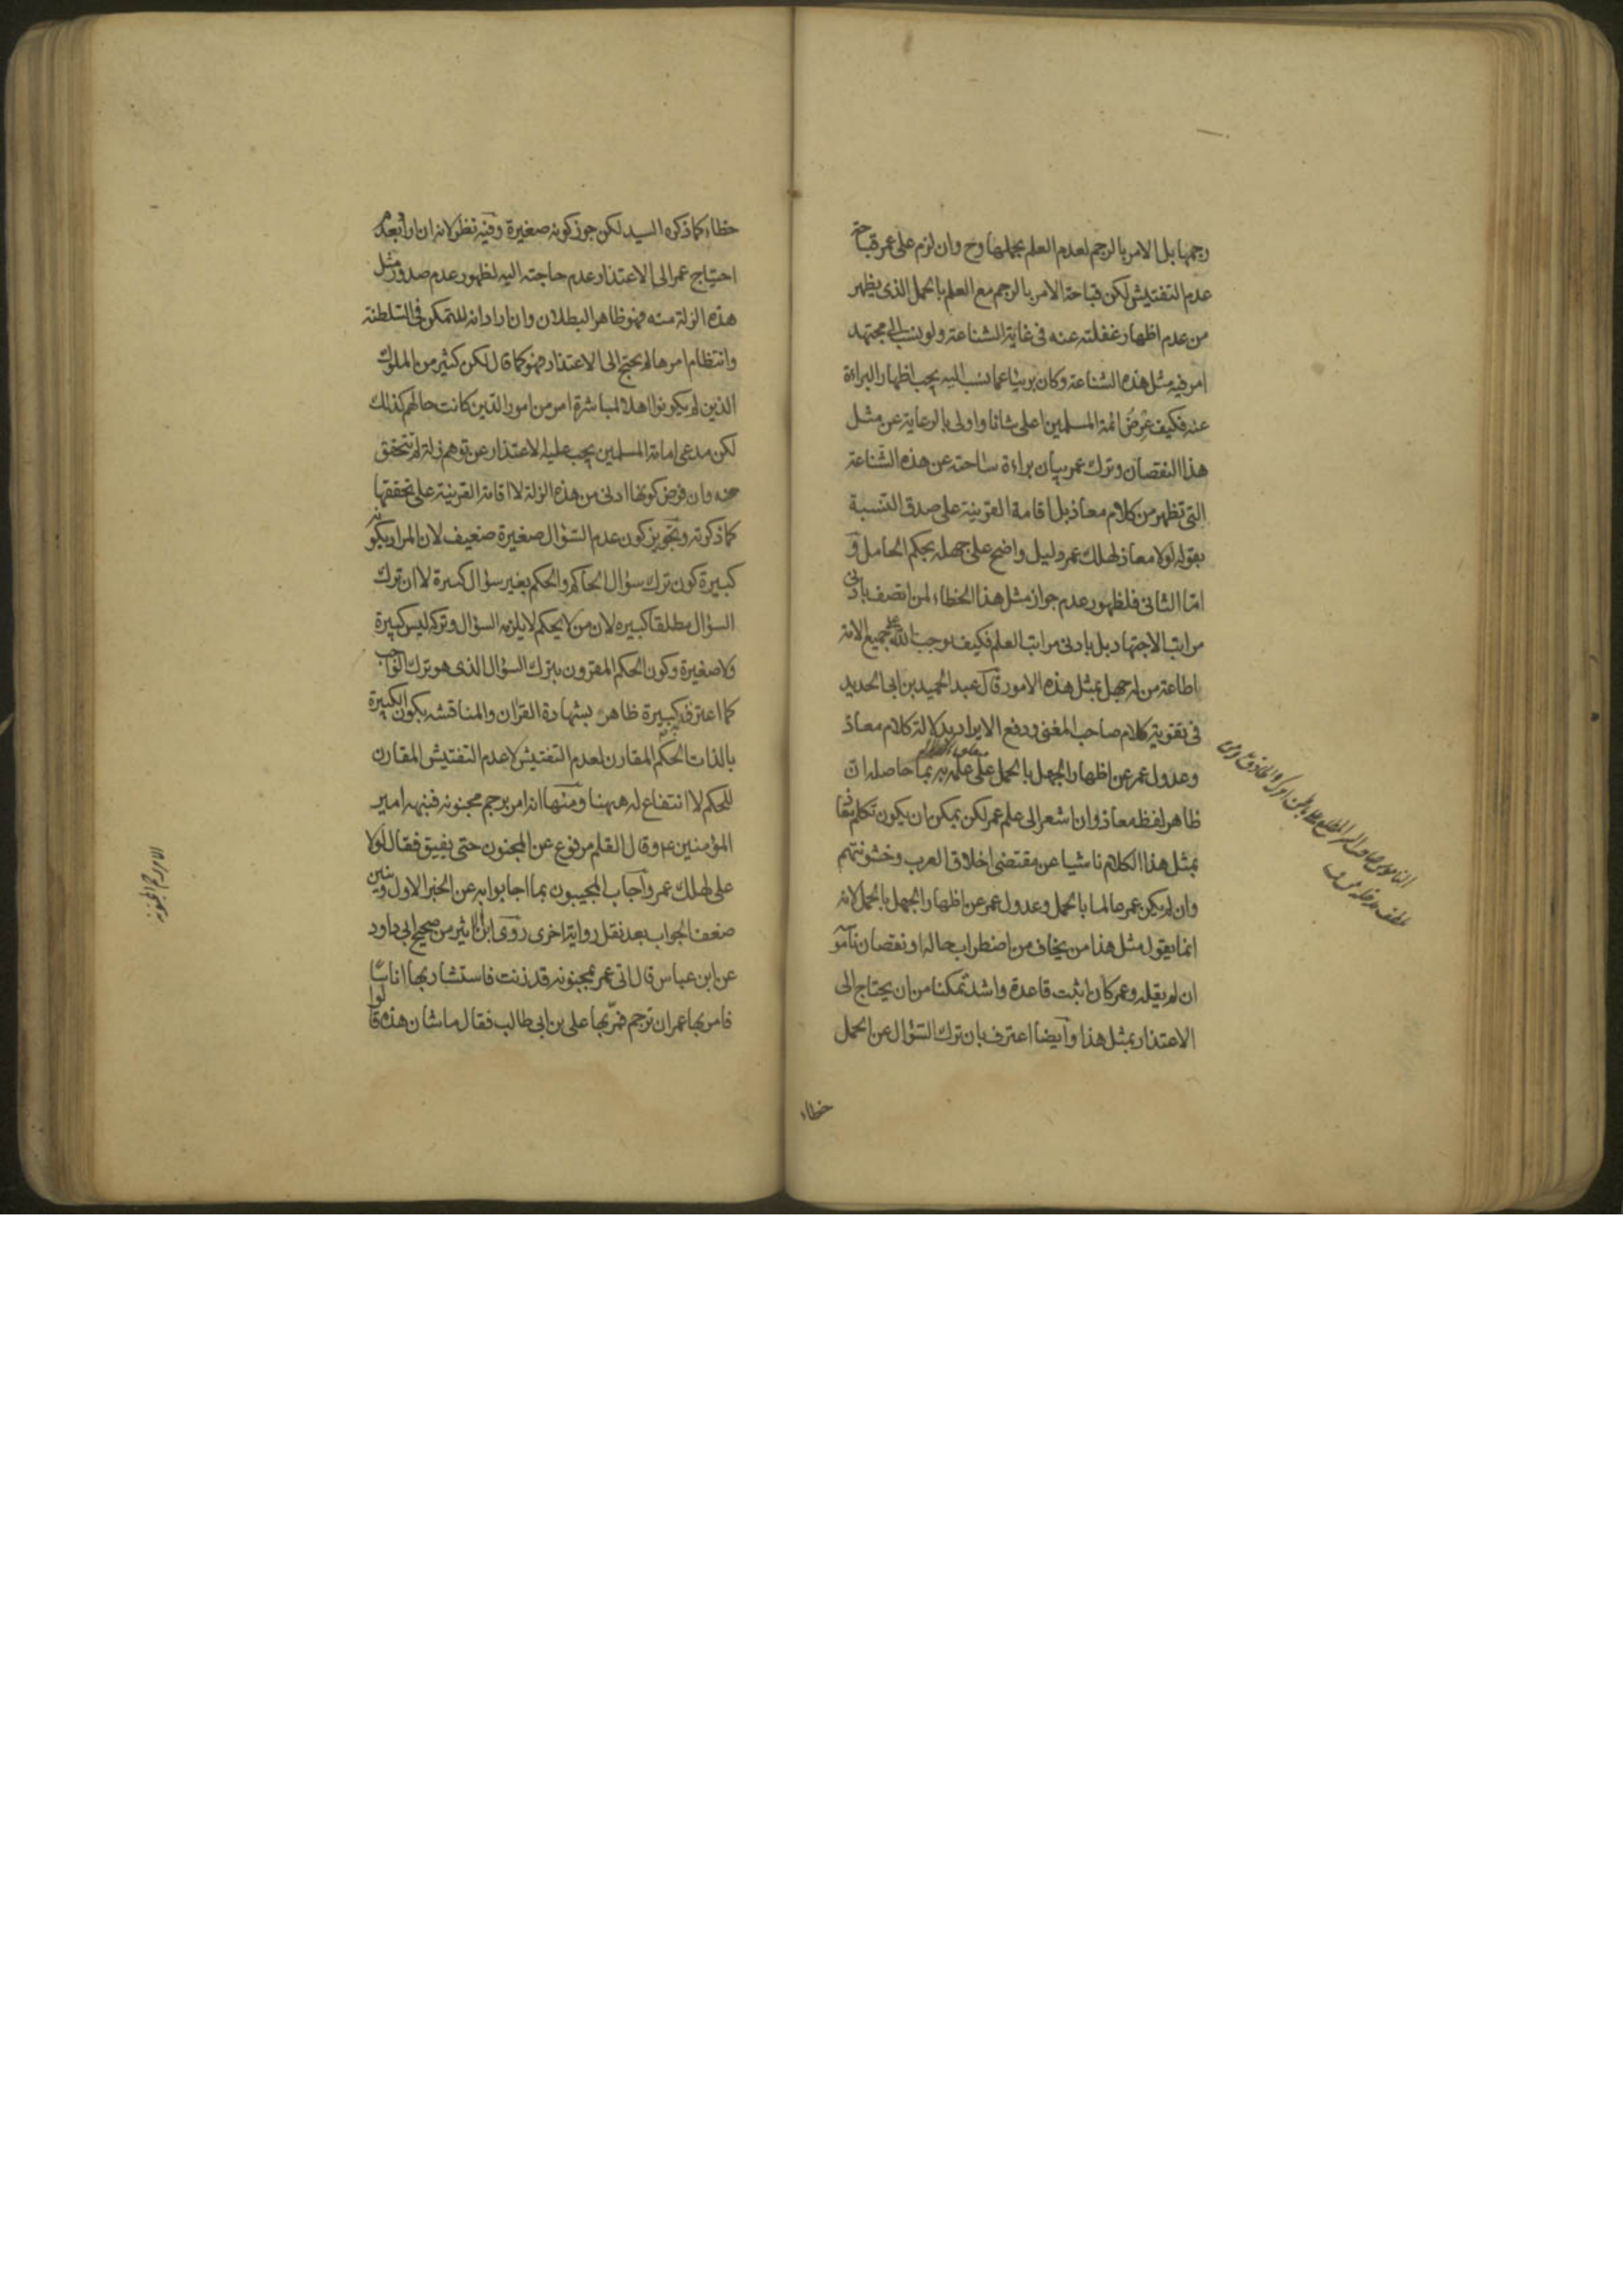 رجمها بل الامر بالرجم لعدم العلم بحملها وح وان لزم على عمر قباحة
عدم التفتيش لكن قباحة الامر بالرجم مع العلم بالحمل الذى يظهر
من عدم اظهار غفلته عنه فى غاية الشناعة ولو نسب الى مجتهد
امر فيه مثل هذه الشناعة وكان بريئا عما نسب اليه يجب اظهار البراءة
عنه فكيف عرض ائمة المسلمين اعلى شانا واولى بالرعاية عن مثل
هذا النقصان وترك عمر بيان براءة ساحته عن هذه الشناعة
التى تظهر من كلام معاذ بل اقامة القرينة على صدق النسبة
بقوله لولا معاذ لهلك عمر دليل واضح على جهله بحكم الحامل و
امّا الثانى فلظهور عدم جواز مثل هذا الخطاء لمن اتصف بادنى
مراتب الاجتهاد بل بادنى مراتب العلم فكيف يوجب الله على جميع الامة
اطاعة من له جهل بمثل هذه الامور قال عبد الحميد بن ابى الحديد
فى تقوية كلام صاحب المغنى ودفع الايراد بدلالة كلام معاذ
وعدول عمر عن اظهار الجهل بالحمل على علمه به بما حاصله ان
ظاهر لفظ معاذ وان اشعر الى علم عمر لكن يمكن ان يكون تكلم معاذ
بمثل هذا الكلام ناشيا عن مقتضى اخلاق العرب وخشونتهم
وان لم يكن عمر عالما بالحمل وعدول عمر عن اظهار الجهل بالحمل لانه
انما يقول مثل هذا من يخاف من اضطراب حاله او نقصان ناموسه
ان لم يقله وعمر كان اثبت قاعدة واشد تمكنا من ان يحتاج الى
الاعتذار بمثل هذا وايضا اعترف بان ترك السؤال عن الحمل
خطاء
الناموس صاحب السر المطلع على باطن امرك
خطاء كما ذكره السيد لكن جوز كونه صغيرة وفيه نظر لانه ان اراد بعدم
احتياج عمر الى الاعتذار عدم حاجته اليه لظهور عدم صدور مثل
هذه الزلة منه فهو ظاهر البطلان وان اراد انه للتمكن فى السلطنة
وانتظام امرها لم يحتج الى الاعتذار فهو كما قال لكن كثير من الملوك
الذين لم يكونوا اهلا لمباشرة امر من امور الدين كانت حالهم كذلك
لكن مدعى امامة المسلمين يجب عليه الاعتذار عن توهم زلة لم تتحقق
منه وان فرض كونها ادنى من هذه الزلة لا اقامة القرينة على تحققها
كما ذكرته وتجويز كون عدم السّؤال صغيرة ضعيف لان المراد بكونه
كبيرة كون ترك سؤال الحاكم والحكم بغير سؤال كبيرة لا ان ترك
السؤال مطلقا كبيره لان من لا يحكم لا يلزمه السؤال وتركه ليس كبيرة
ولا صغيرة وكون الحكم المقرون بترك السؤال الذى هو ترك الواجب
كما اعترف به كبيرة ظاهر بشهادة القران والمناقشة بكون الكبيرة
بالذات الحكم المقارن لعدم التفتيش لا عدم التفتيش المقارن
للحكم لا انتفاع له ههنا ومنها انه امر برجم مجنونة فنبهه امير
المؤمنين ع م وقال القلم مرفوع عن المجنون حتى يفيق فقال لولا
على لهلك عمر واجاب المجيبون بما اجابوا به عن الخبر الاول ونبين
ضعف الجواب بعد نقل رواية اخرى روى ابن الاثير من صحيح ابى داود
عن ابن عباس قال اتى عمر بمجنونة قد زنت فاستشار بها اناسا
فامر بها عمر ان ترجم فمرّ بها على بن ابى طالب فقال ما شان هذه قالوا
الامر برجم المجنونة